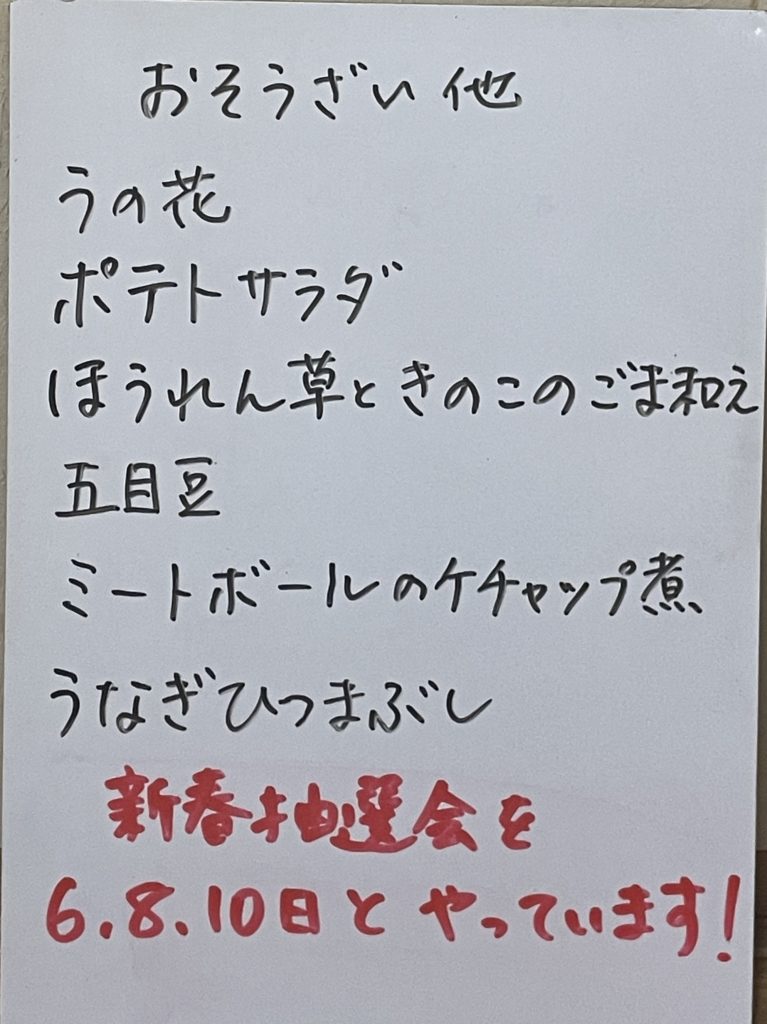 おそうざい 他
うの花
ポテトサラダ
ほうれん草ときのこのごま和え
五目豆
ミートボールのケチャップ煮
うなぎひつまぶし
新春抽選会を
6.8.10日とやっています!